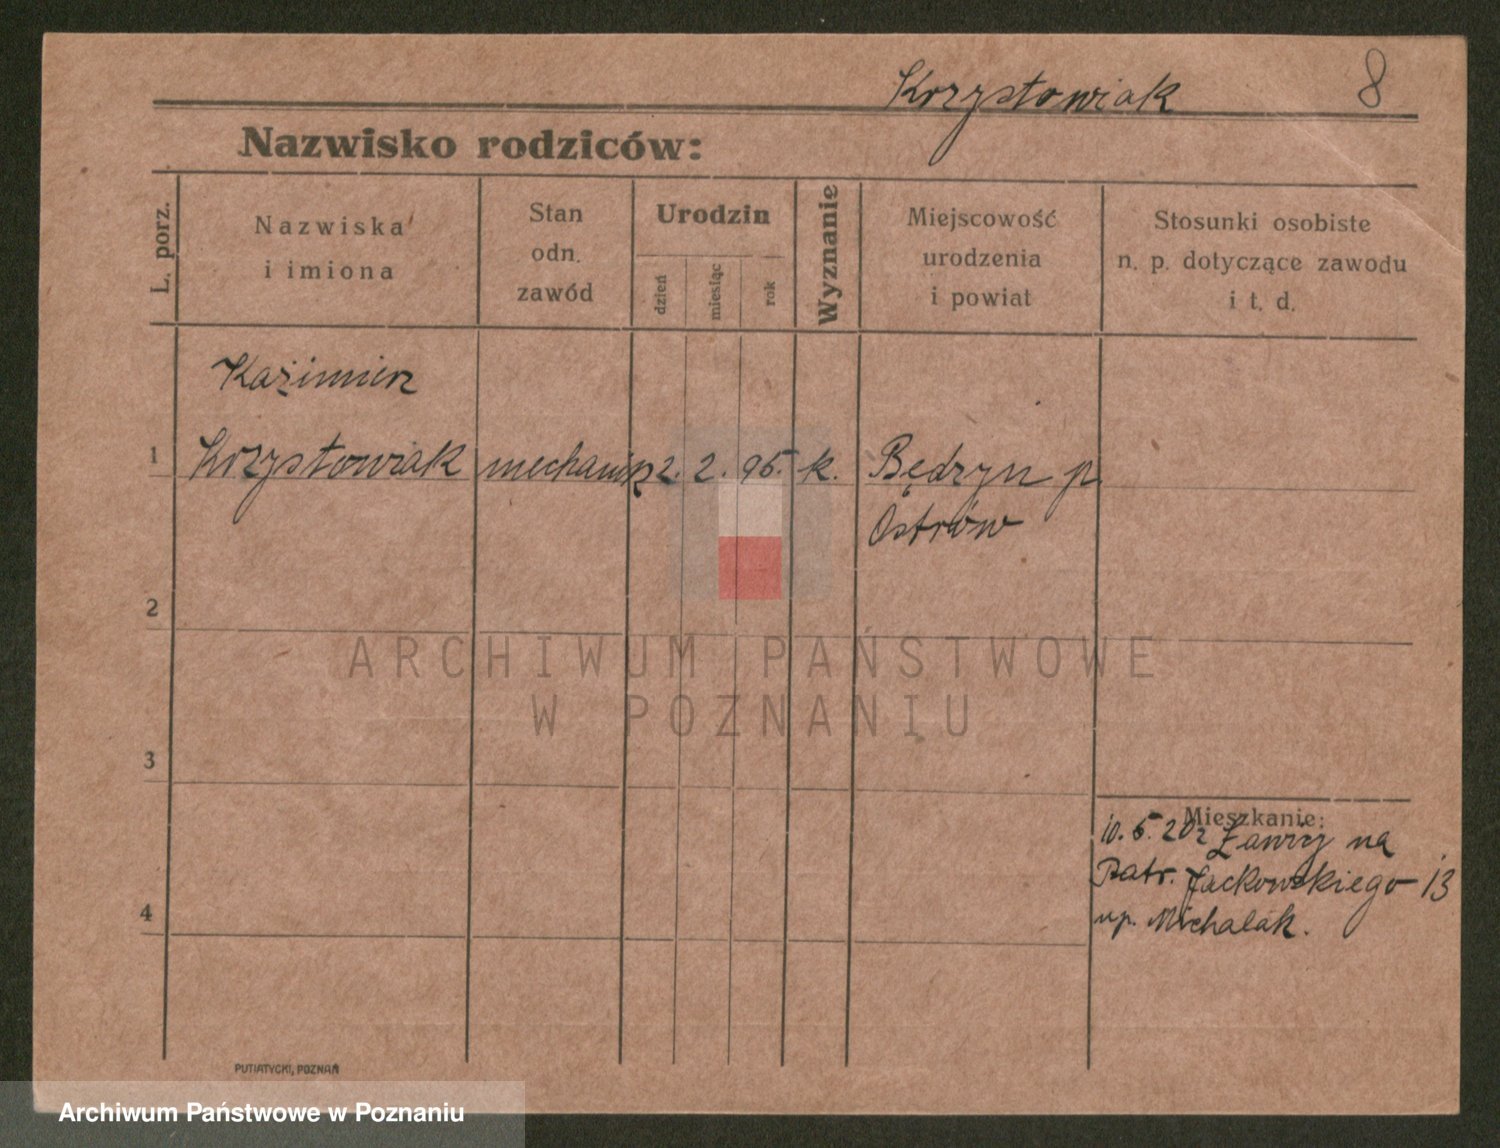 Krzystowiak 8
Nazwisko rodziców:
L. porz.
Nazwiska
i imiona
Stan
odn.
zawód
Urodzin
dzień
miesiąc
rok
Wyznanie
Miejscowość
urodzenia
i powiat
Stosunki osobiste
n. p. dotyczące zawodu
i t. d.
Kazimierz
1 Krzystowiak mechanik 2. 2. 95. k. Będzyn p.
Ostrów
2
ARCHIWUM PAŃSTWOWE
W POZNANIU
3
Mieszkanie:
10. 5. 20 z Ławicy na
Patr. Jackowskiego 13
up. Michalak.
4
PUTIATYCKI, POZNAŃ
Archiwum Państwowe w Poznaniu